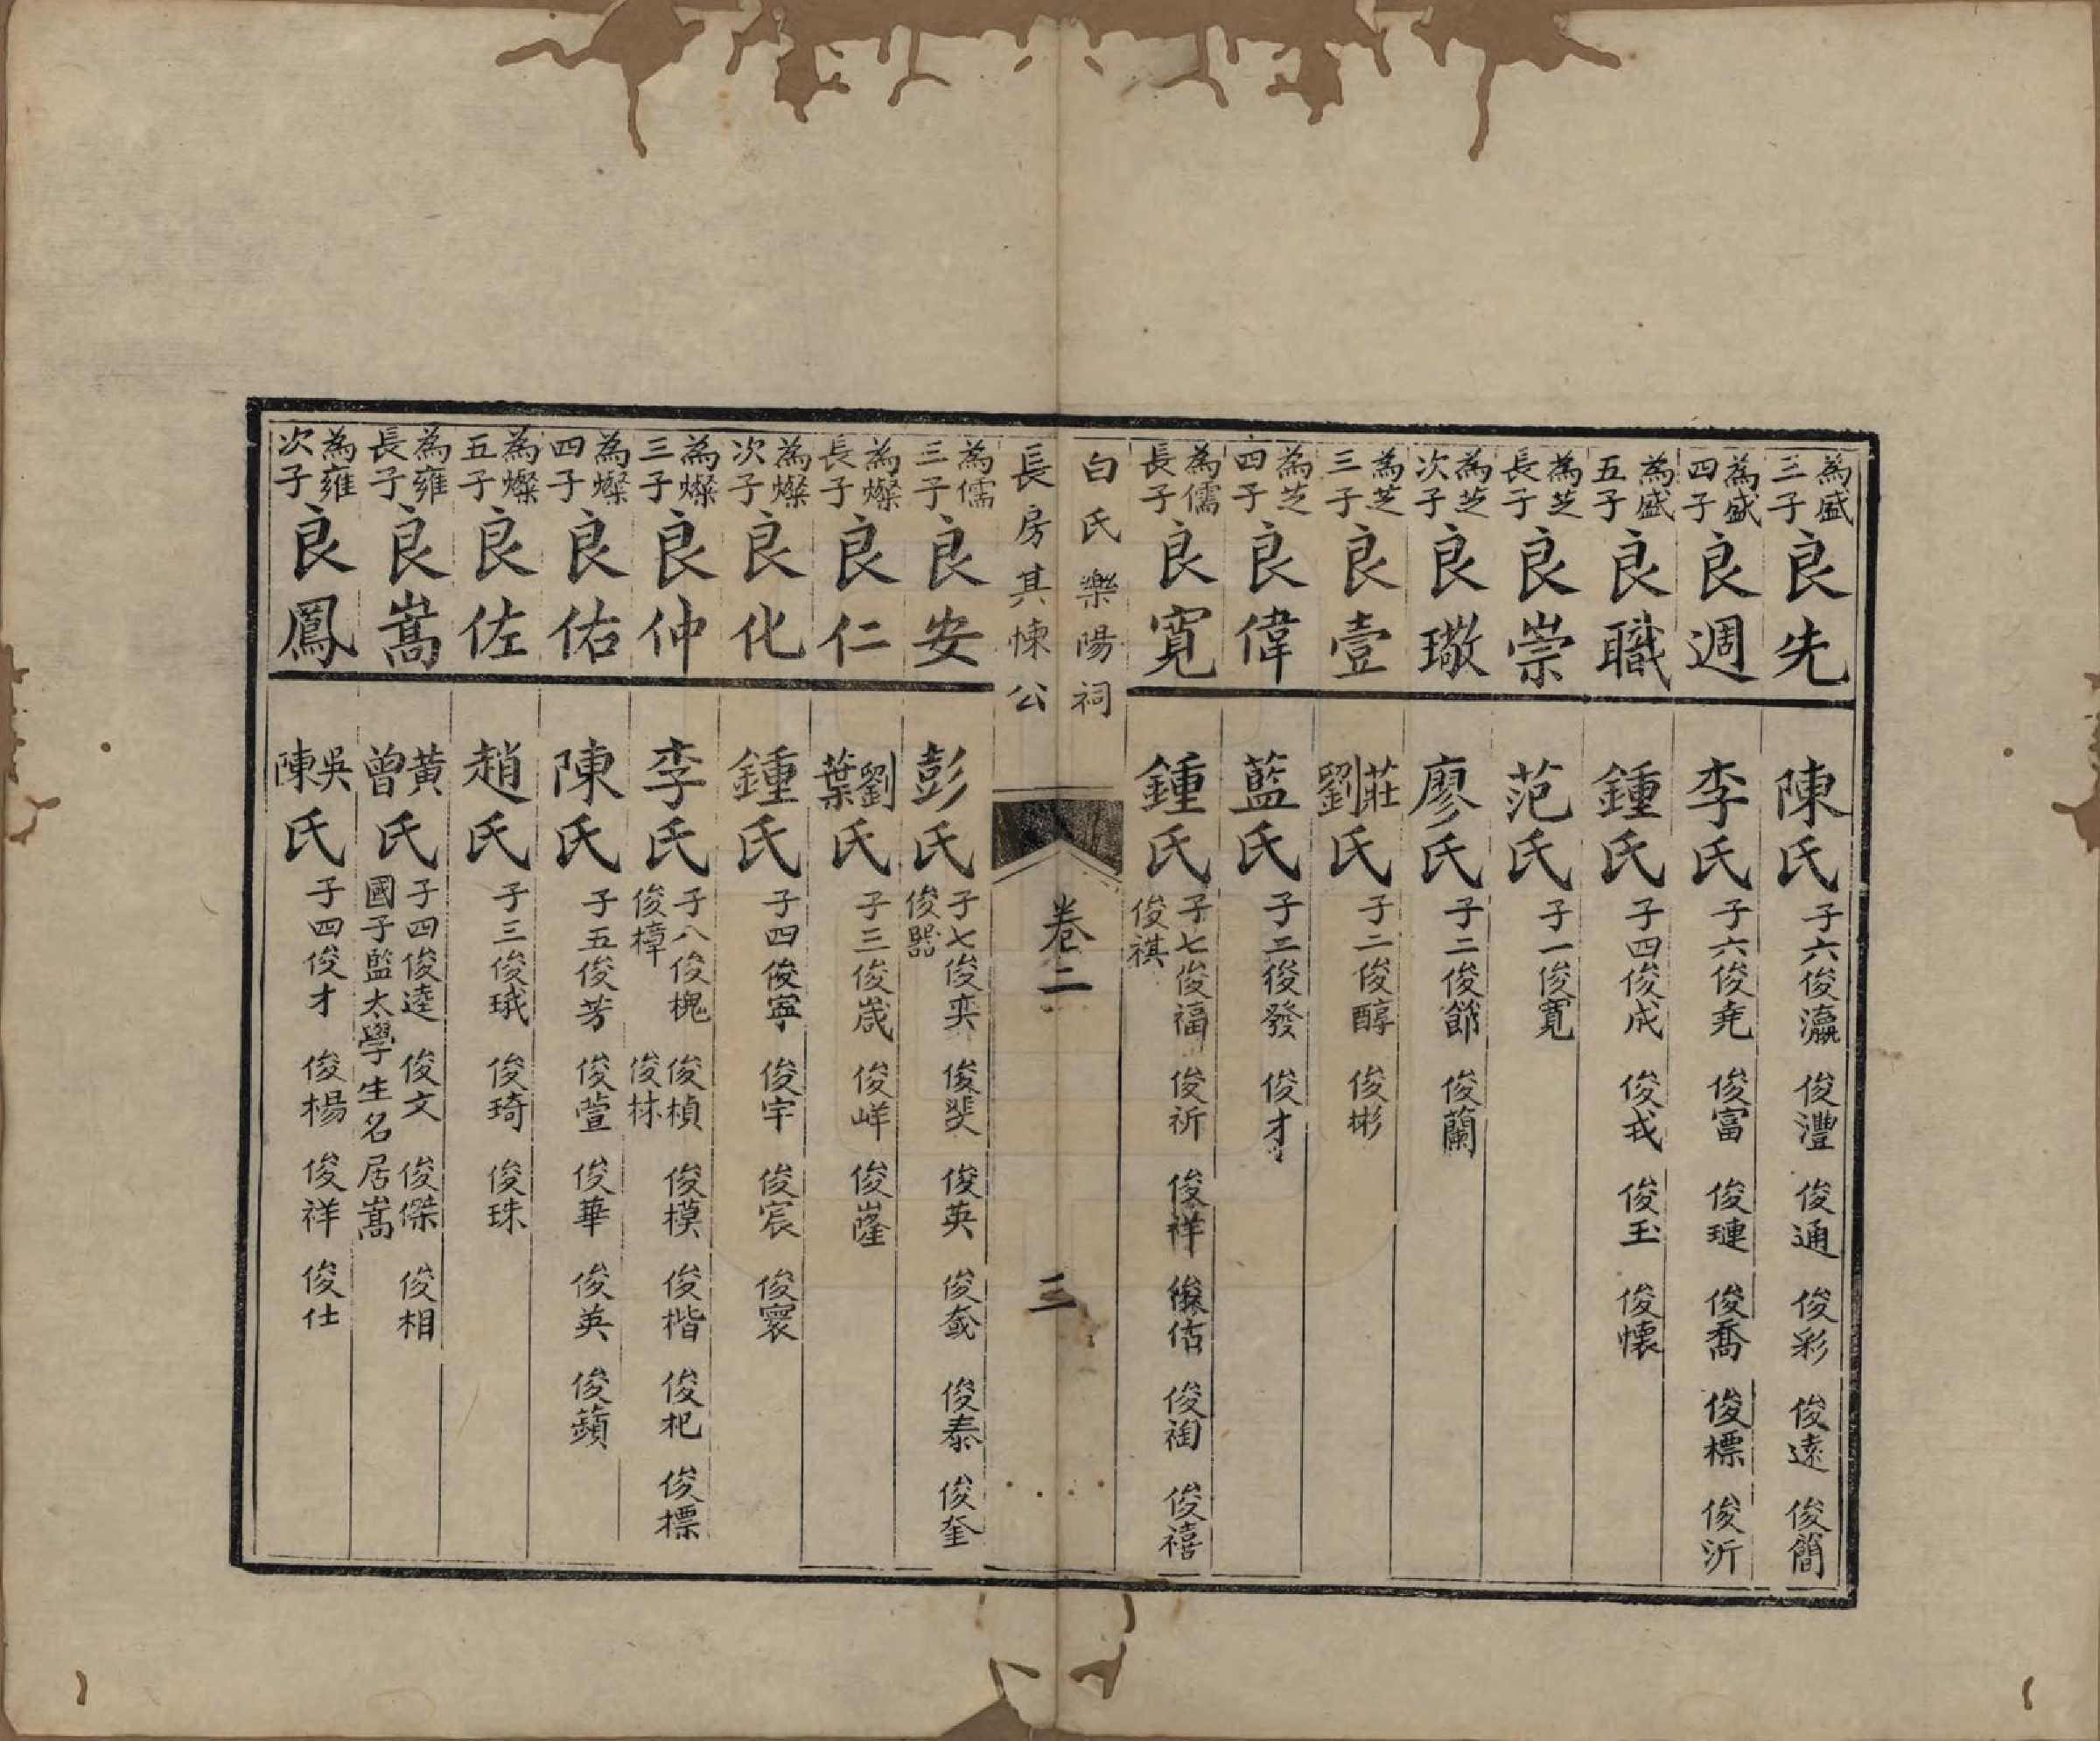 為盛三子 良先 陳氏 子六俊瀛 俊灃 俊通 俊彩 俊遠 俊簡
為盛四子 良週 李氏 子六俊尭 俊富 俊璉 俊喬 俊標 俊沂
為盛五子 良職 鍾氏 子四俊成 俊戎 俊玉 俊懐
為芝長子 良崇 范氏 子一俊寛
為芝次子 良璥 廖氏 子二俊節 俊蘭
為芝三子 良壹 莊劉氏 子二俊醇 俊彬
為芝四子 良偉 藍氏 子二俊發 俊才
為儒長子 良寛 鍾氏 子七俊福 俊祈 俊祥 俊佑 俊禂 俊禧 俊祺
白氏樂陽祠
卷二 三
長房其悚公
為儒三子 良安 彭氏 子七俊奕 俊斐 俊英 俊 俊泰 俊奎 俊器
為燦長子 良仁 劉葉氏 子三俊嵗 俊峍 俊嶐
為燦次子 良化 鍾氏 子四俊寧 俊宇 俊宸 俊寰
為燦三子 良仲 李氏 子八俊槐 俊楨 俊模 俊楷 俊杞 俊標 俊樟 俊林
為燦四子 良佑 陳氏 子五俊芳 俊萱 俊華 俊英 俊蘋
為燦五子 良佐 趙氏 子三俊珴 俊琦 俊珠
為雍長子 良嵩 黄曾氏 子四俊逵 俊文 俊傑 俊相 國子監太學生名居嵩
為雍次子 良鳳 吳陳氏 子四俊才 俊楊 俊祥 俊仕